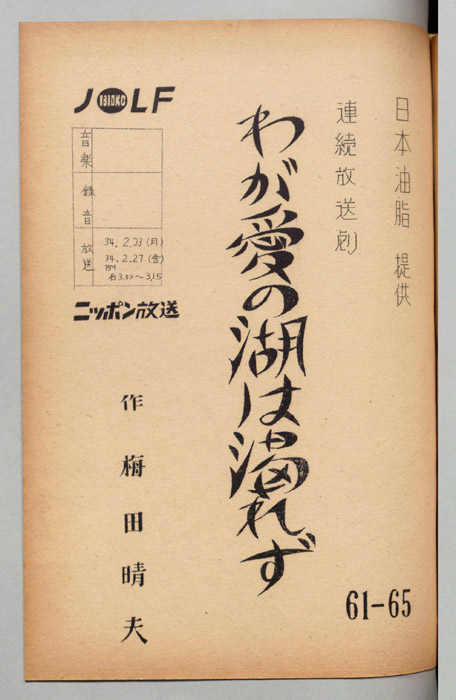 日本油脂 提供
連続放送劇
わが愛の湖は渇れず
61-65
JOLF
1310KC
音楽
録音
放送
34.2.23(月)
34.2.27(金)
3.00〜3.15
ニッポン放送
作 梅田晴夫